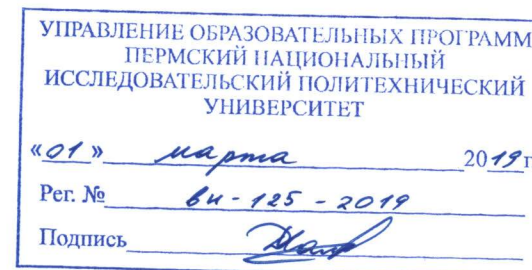 УПРАВЛЕНИЕ ОБРАЗОВАТЕЛЬНЫХ ПРОГРАММ
ПЕРМСКИЙ НАЦИОНАЛЬНЫЙ
ИССЛЕДОВАТЕЛЬСКИЙ ПОЛИТЕХНИЧЕСКИЙ
УНИВЕРСИТЕТ
«01» марта 2019г
Рег. № вн-125-2019
Подпись